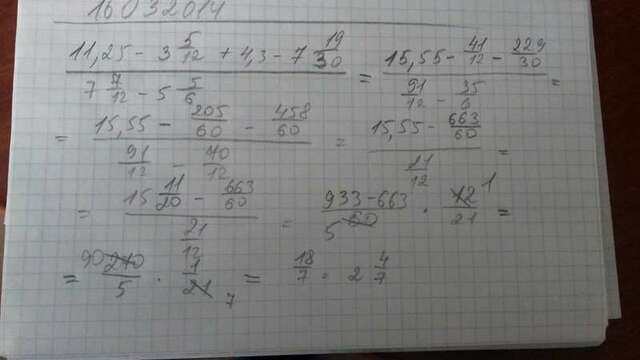 16032014
(11,25 - 3 5/12 + 4,3 - 7 19/30) / (7 7/12 - 5 5/6) = (15,55 - 41/12 - 229/30) / (91/12 - 35/6) =
= (15,55 - 205/60 - 458/60) / (91/12 - 70/12) = (15,55 - 663/60) / (21/12) =
= (15 11/20 - 663/60) / (21/12) = (933 - 663) / (5 60) · 12 1 / 21 =
= 90 270 / 5 · 1 / (21 7) = 18/7 = 2 4/7